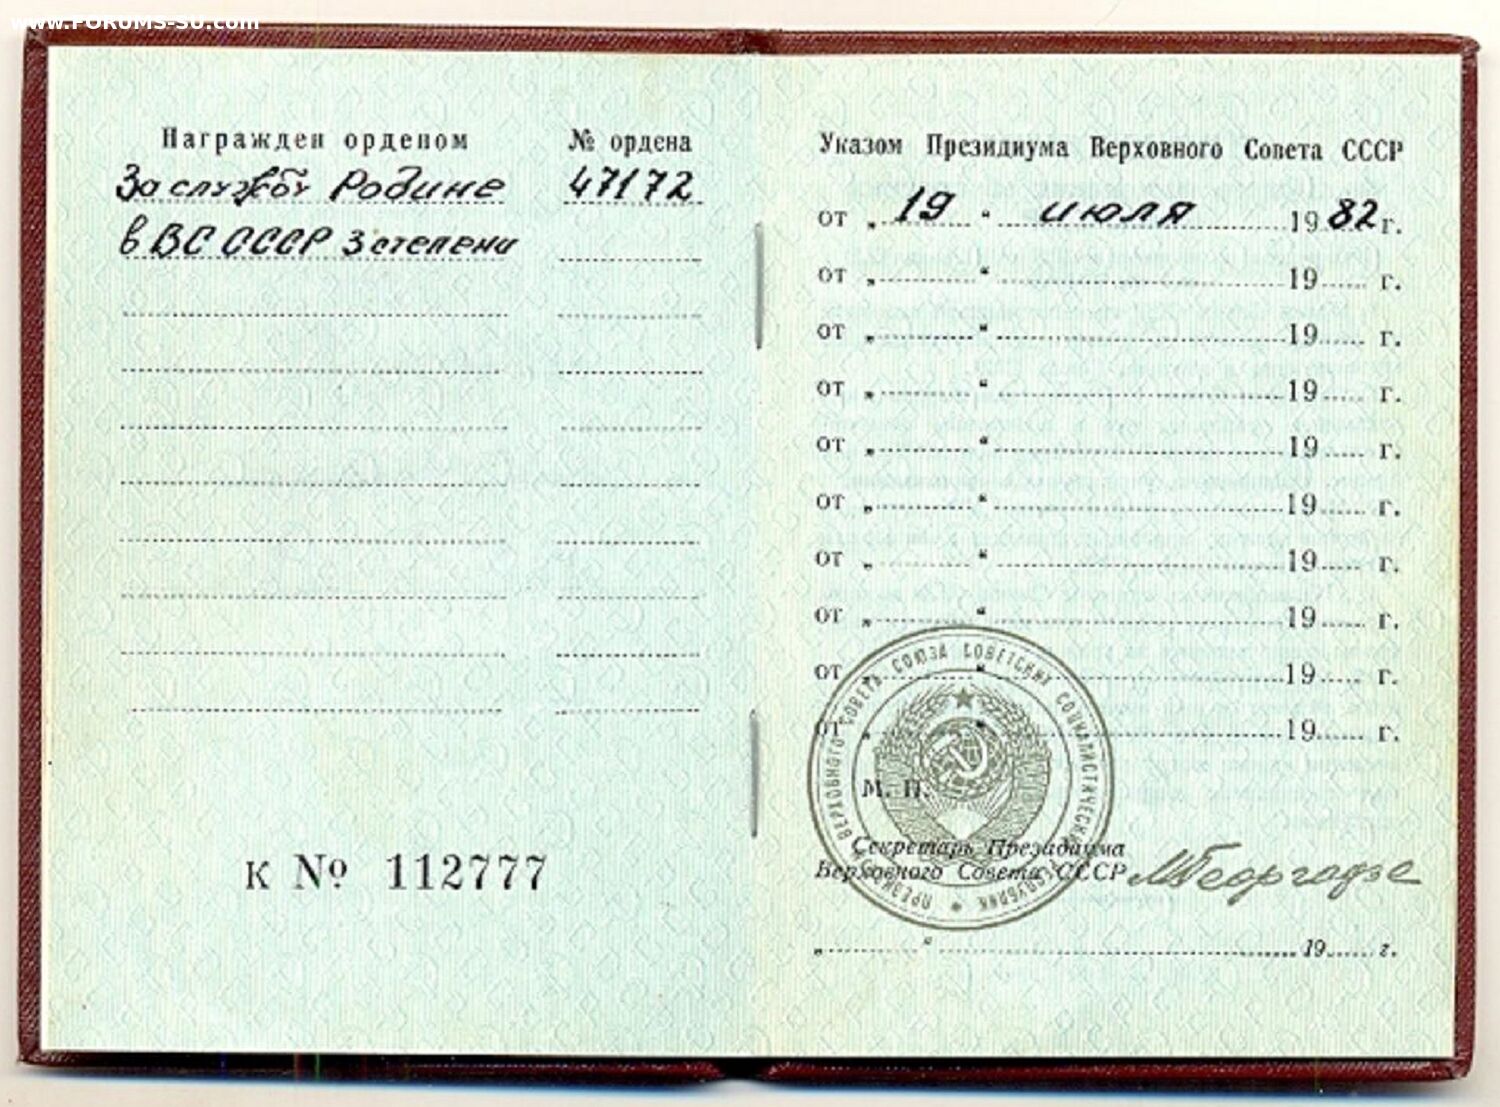 www.FORUMS-SU.com
Награжден орденом № ордена
За службу Родине 47172
в ВС СССР 3 степени
к № 112777
Указом Президиума Верховного Совета СССР
от „ 19 “ июля 1982 г.
от „ “ 19 г.
от „ “ 19 г.
от „ “ 19 г.
от „ “ 19 г.
от „ “ 19 г.
от „ “ 19 г.
от „ “ 19 г.
от „ “ 19 г.
от „ “ 19 г.
ПРЕЗИДИУМ ВЕРХОВНОГО СОВЕТА СОЮЗА СОВЕТСКИХ СОЦИАЛИСТИЧЕСКИХ РЕСПУБЛИК
М. П.
Секретарь Президиума
Верховного Совета СССР МГеоргадзе
„ “ 19 г.